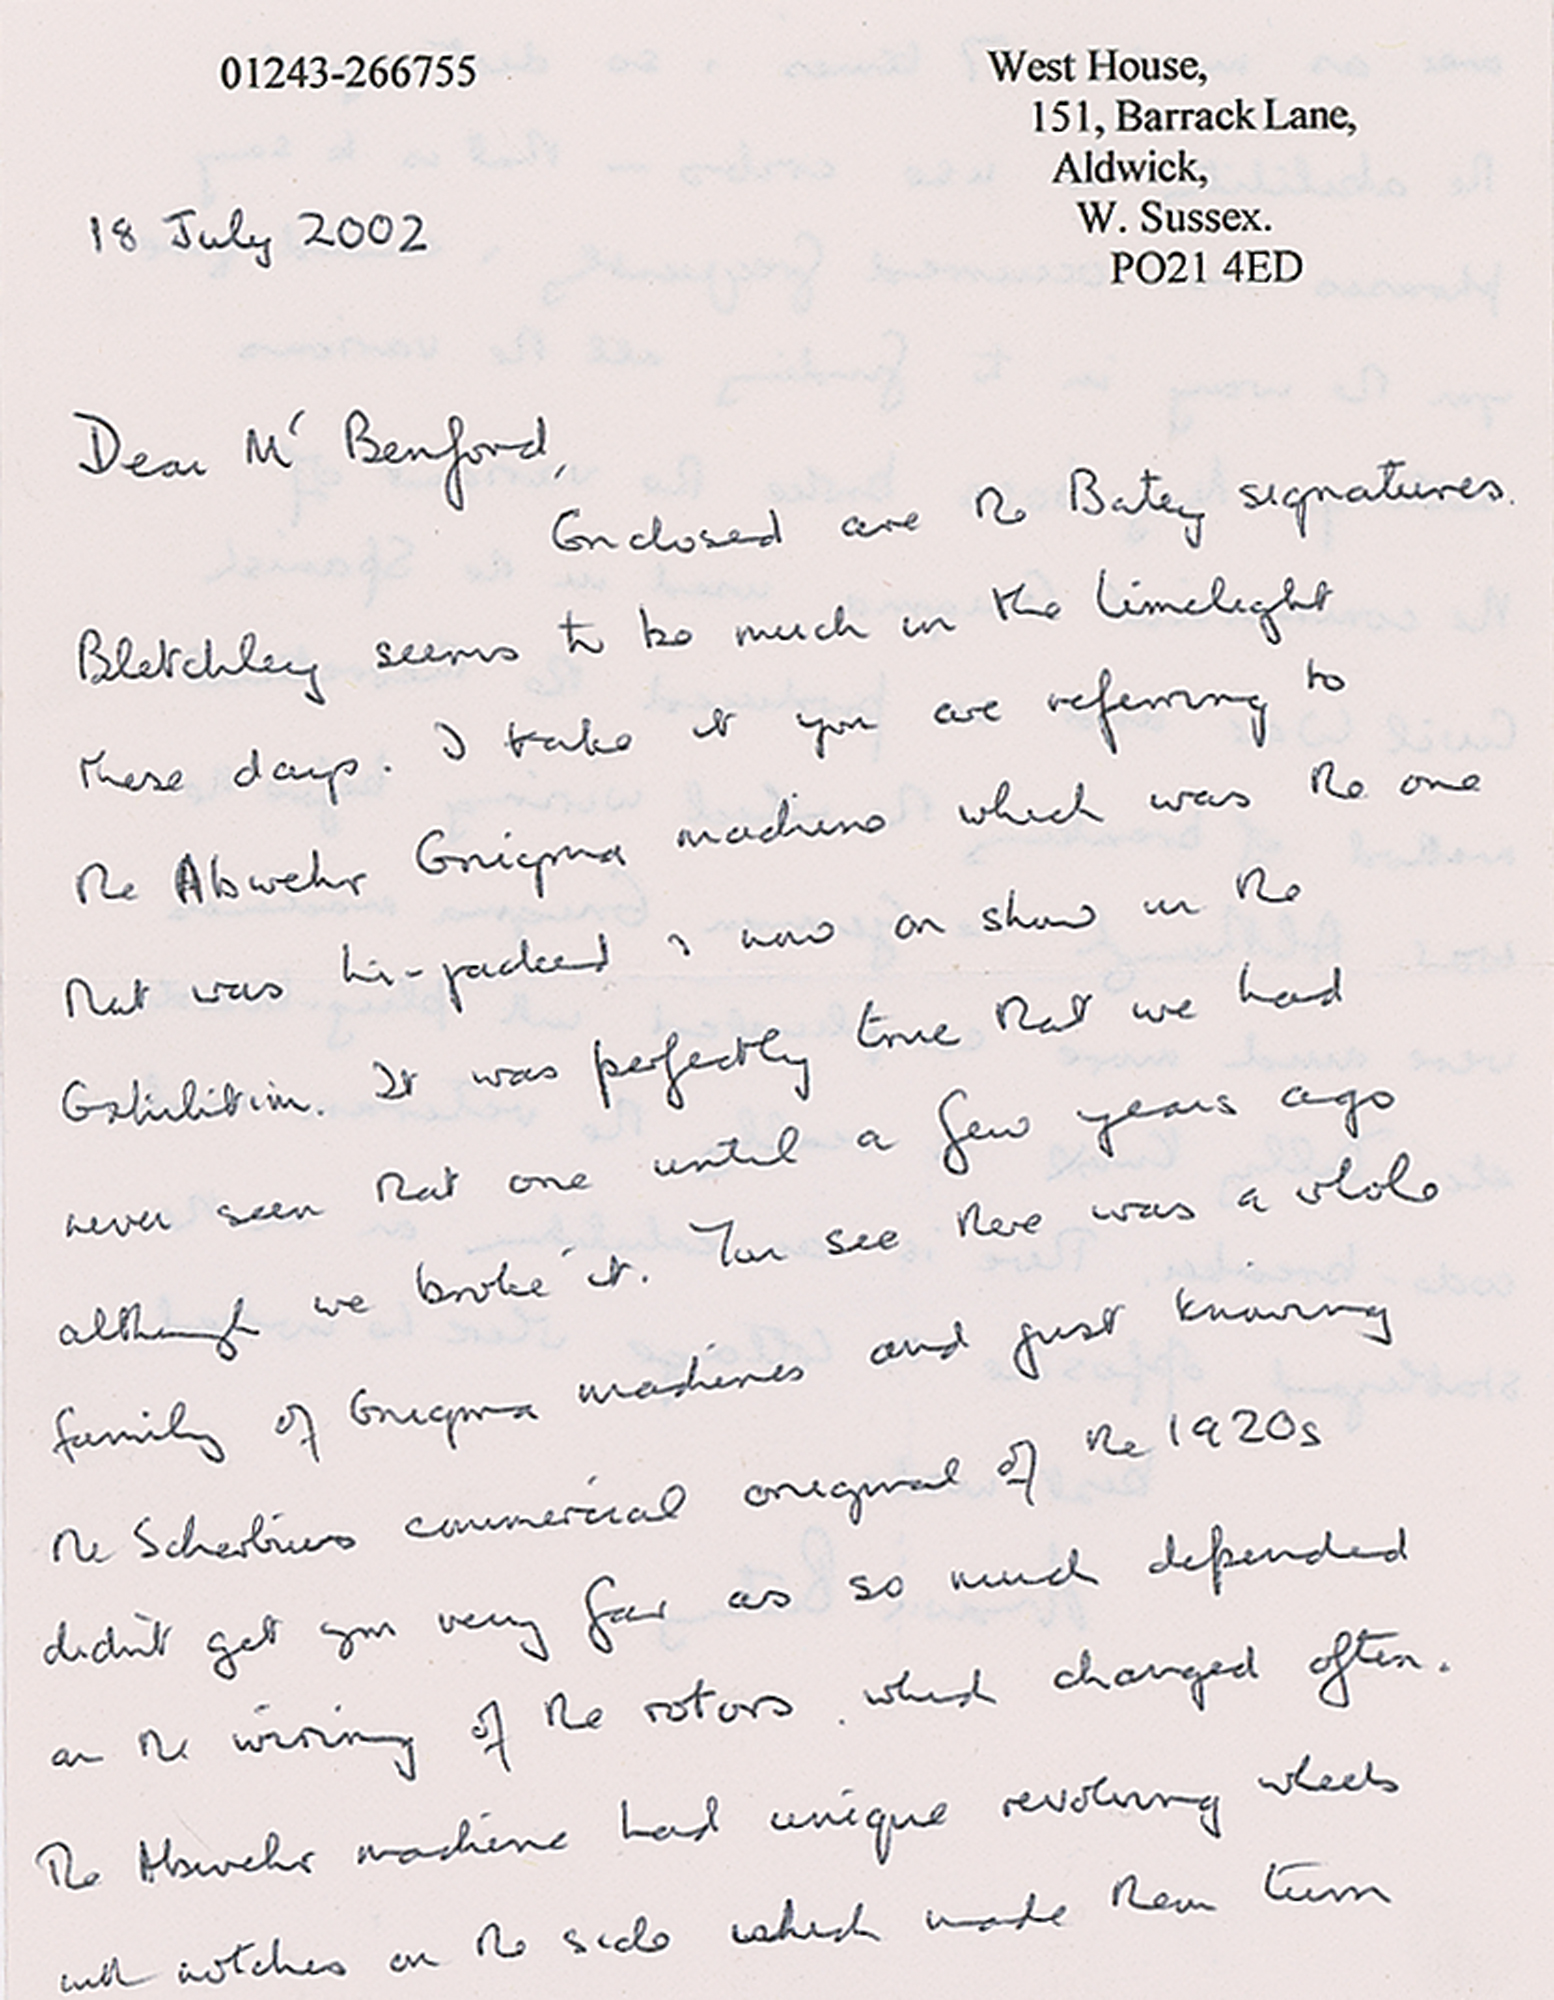 01243-266755
West House,
151, Barrack Lane,
Aldwick,
W. Sussex.
PO21 4ED
18 July 2002
Dear Mr Benford,
Enclosed are the Batey signatures.
Bletchley seems to be much in the limelight
these days. I take it you are referring to
the Abwehr Enigma machine which was the one
that was hi-jacked & now on show in the
Exhibition. It was perfectly true that we had
never seen that one until a few years ago
although we 'broke' it. You see there was a whole
family of Enigma machines and just knowing
the Scherbius commercial original of the 1920s
didn't get you very far as so much depended
on the wiring of the rotors which changed often.
The Abwehr machine had unique revolving wheels
with notches on the side which made them turn